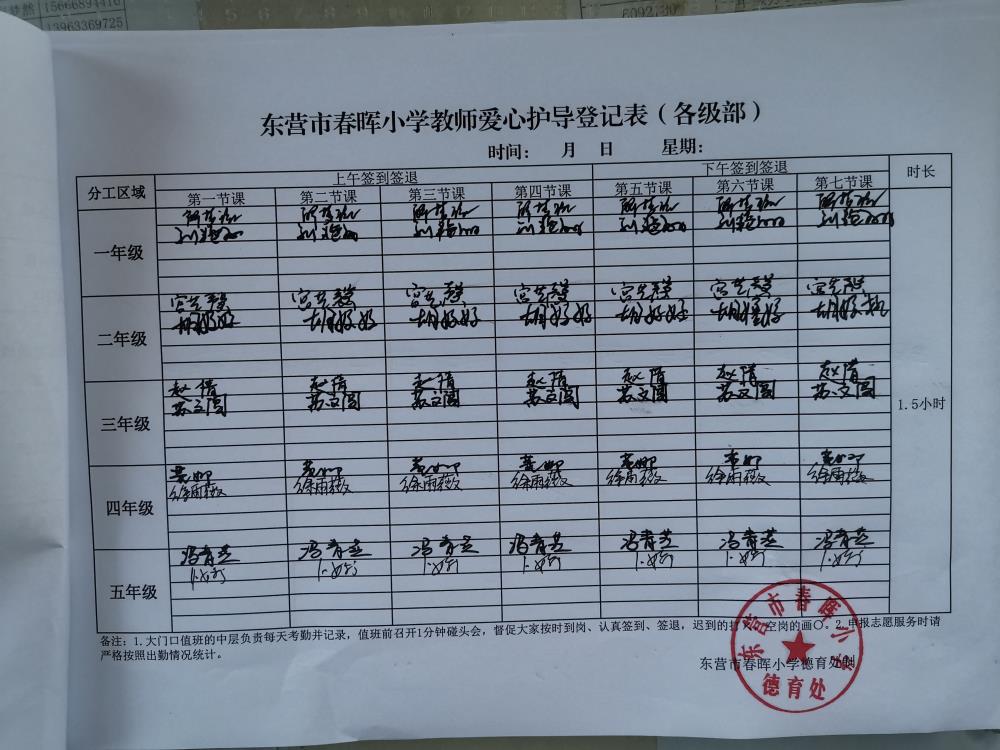 15666894416
13963369725
6092.30
东营市春晖小学教师爱心护导登记表（各级部）
时间： 月 日 星期：
分工区域 上午签到签退 下午签到签退 时长
第一节课 第二节课 第三节课 第四节课 第五节课 第六节课 第七节课
一年级
二年级
宫艺馨 宫艺馨 宫艺馨 宫艺馨 宫艺馨 宫艺馨 宫艺馨
胡婷婷 胡婷婷 胡婷婷 胡婷婷 胡婷婷 胡婷婷 胡婷婷
三年级
赵倩 赵倩 赵倩 赵倩 赵倩 赵倩 赵倩
苏文圆 苏文圆 苏文圆 苏文圆 苏文圆 苏文圆 苏文圆
1.5小时
四年级
黄娜 黄娜 黄娜 黄娜 黄娜 黄娜 黄娜
徐雨薇 徐雨薇 徐雨薇 徐雨薇 徐雨薇 徐雨薇 徐雨薇
五年级
冯青芝 冯青芝 冯青芝 冯青芝 冯青芝 冯青芝 冯青芝
备注：1.大门口值班的中层负责每天考勤并记录，值班前召开1分钟碰头会，督促大家按时到岗、认真签到、签退，迟到的打 ，空岗的画〇。2.申报志愿服务时请
严格按照出勤情况统计。
东营市春晖小学德育处制
东营市春晖小学
德育处